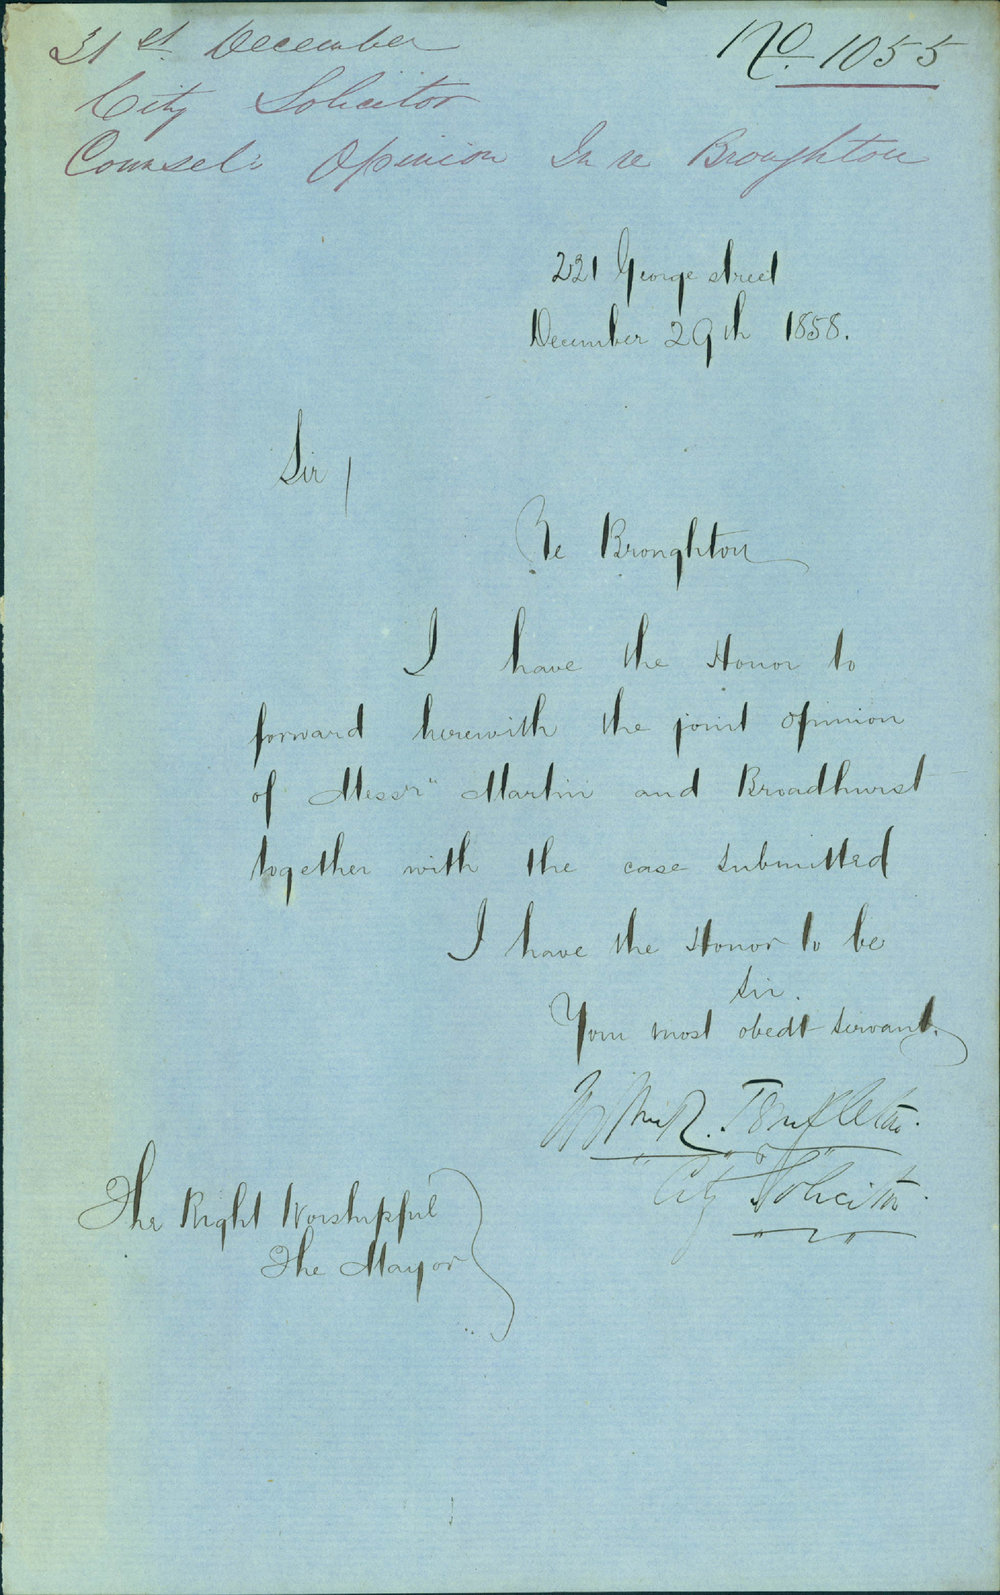 31st December
No. 1055
City Solicitor
Counsel's Opinion In re Broughton
221 George street
December 29th 1858.
Sir /
Re Broughton
I have the Honor to
forward herewith the joint opinion
of Messrs Martin and Broadhurst
together with the case submitted
I have the Honor to be
Sir.
Your most obedt servant.
R. Templeton.
City Solicitor.
The Right Worshipful
The Mayor